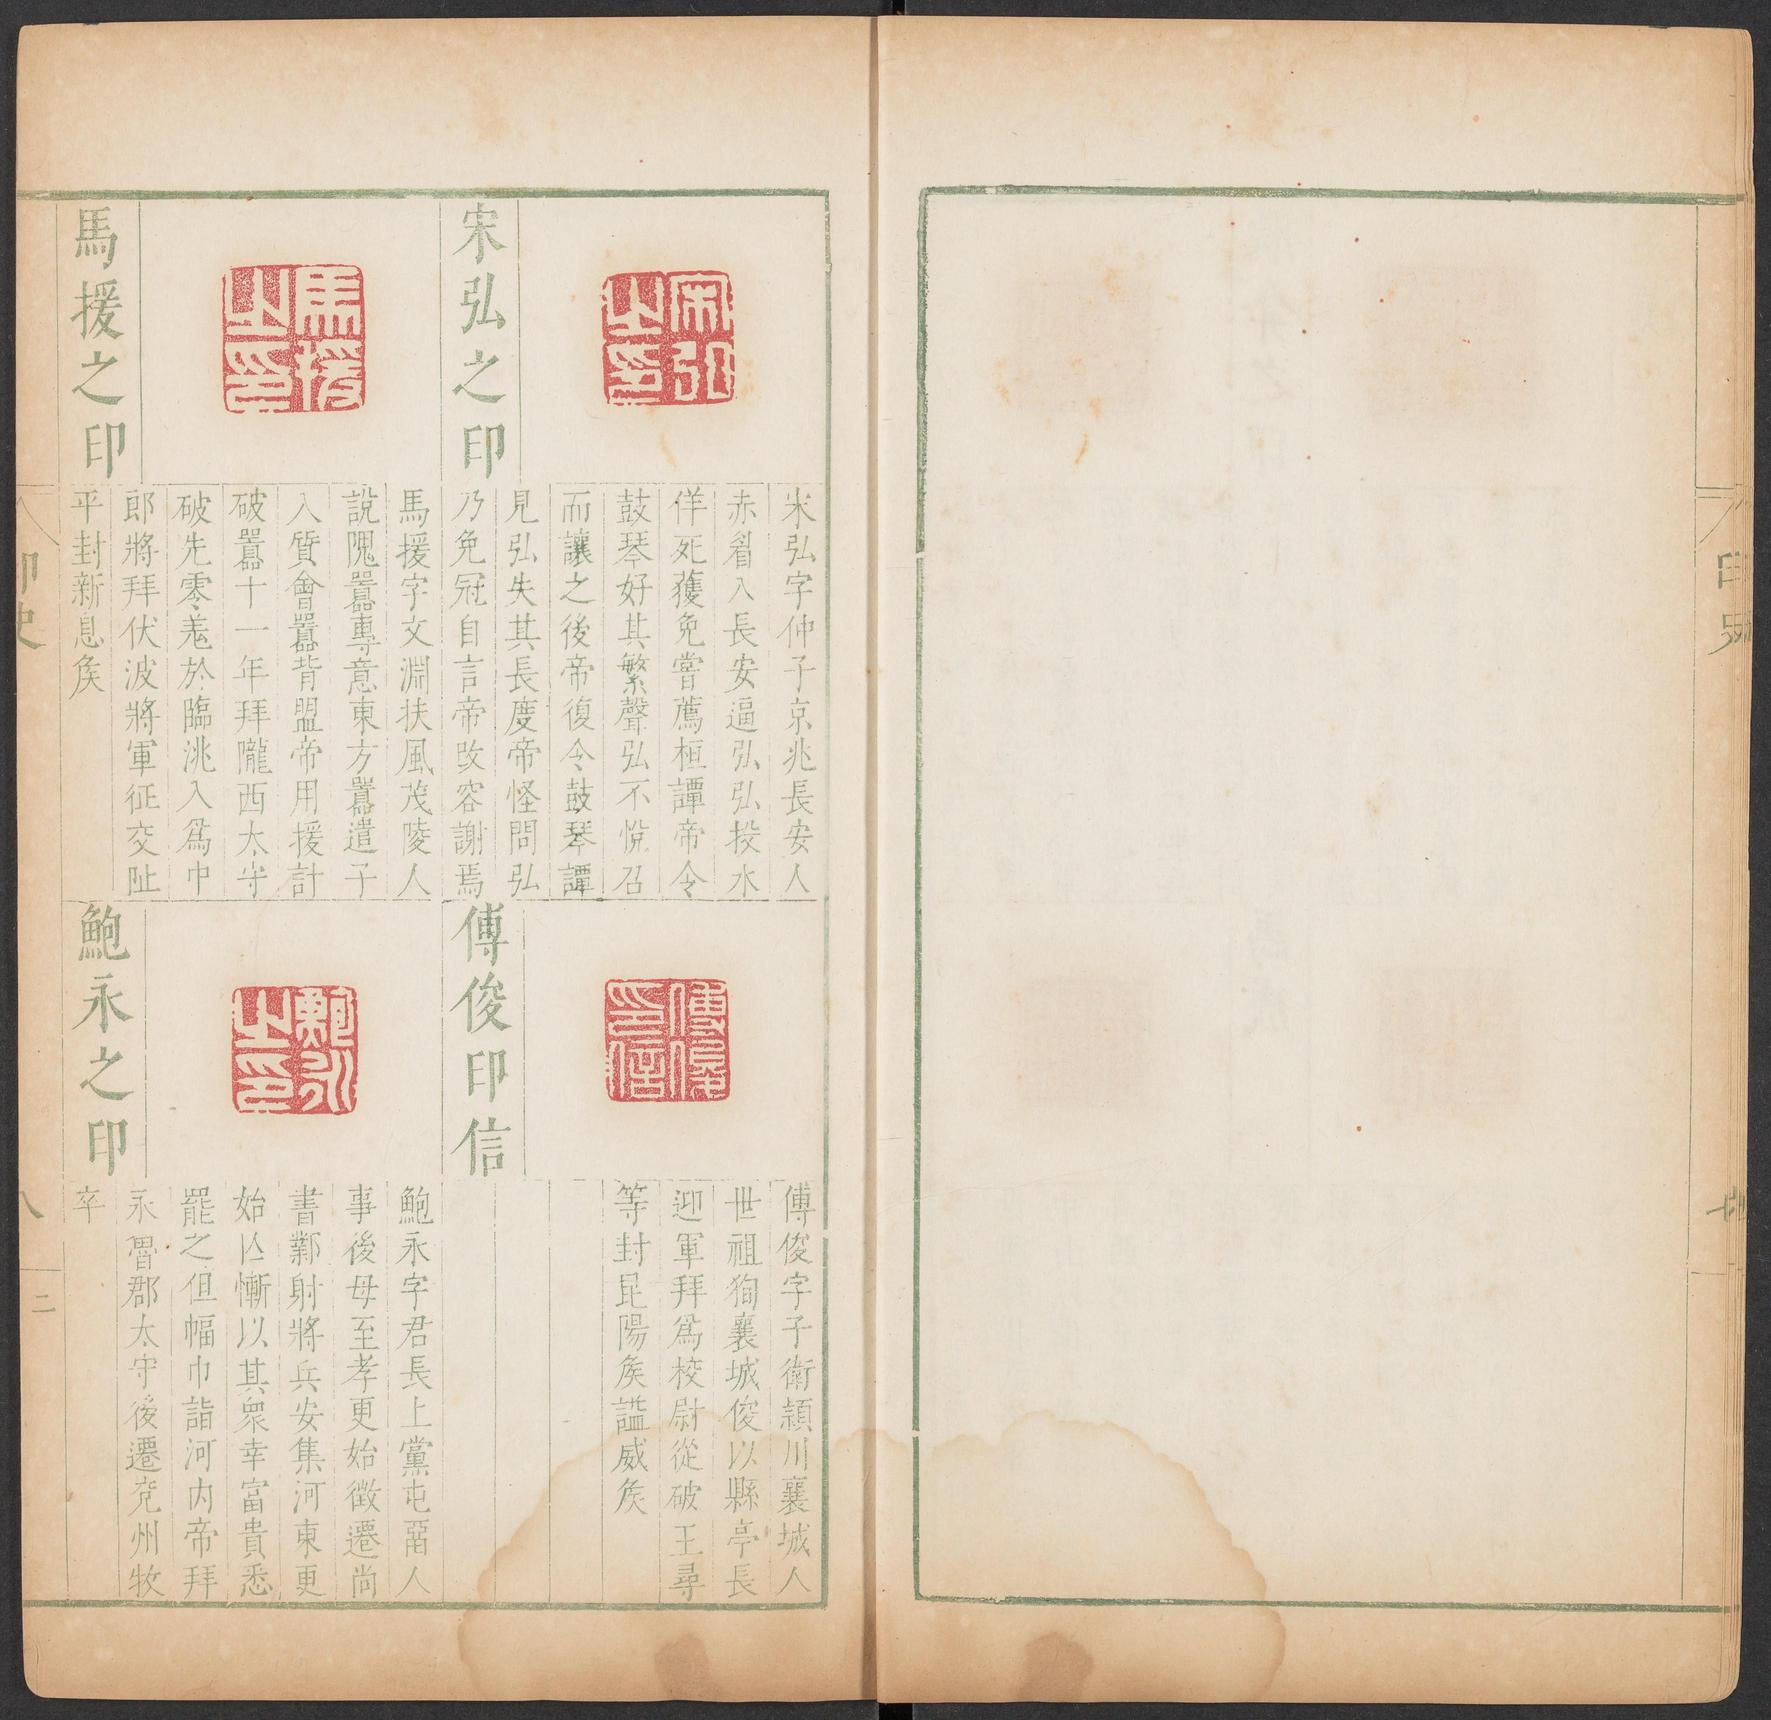 宋弘之印
宋弘
之印
宋弘字仲子京兆長安人
赤眉入長安逼弘弘投水
佯死獲免嘗薦桓譚帝令
鼓琴好其繁聲弘不悅召
而讓之後帝復令鼓琴譚
見弘失其長度帝怪問弘
乃免冠自言帝改容謝焉
馬援之印
馬援
之印
馬援字文淵扶風茂陵人
說隗囂專意東方囂遣子
入質會囂背盟帝用援計
破囂十一年拜隴西太守
破先零羌於臨洮入爲中
郎將拜伏波將軍征交阯
平封新息矦
傅俊印信
傅俊
印信
傅俊字子衛頴川襄城人
世祖狥襄城俊以縣亭長
迎軍拜爲校尉從破王尋
等封昆陽矦謚威矦
鮑永之印
鮑永
之印
鮑永字君長上黨屯畱人
事後母至孝更始徵遷尚
書鄴射將兵安集河東更
始亾慚以其衆幸富貴悉
罷之但幅巾詣河内帝拜
永魯郡太守後遷兖州牧
卒
印史
二
印史